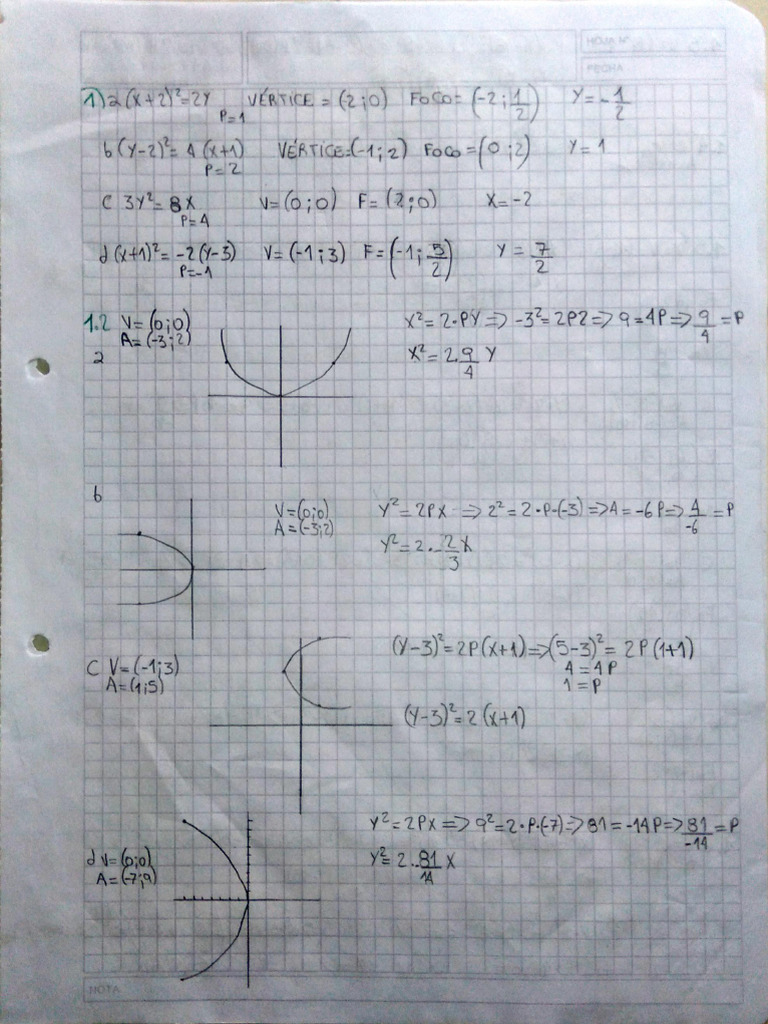 HOJA N°
FECHA
1) a (x+2)²=2Y VÉRTICE = (2;0) FOCO= (-2; 1/2) Y=-1/2
P=1
b (Y-2)²= 4 (x+1) VÉRTICE=(-1;2) FOCO=(0;2) Y=1
P=2
C 3Y²= 8X V=(0;0) F=(2;0) X=-2
P=4
d (x+1)²=-2(Y-3) V=(-1;3) F=(-1; 5/2) Y= 7/2
P=-1
1.2 V=(0;0) X²=2·PY => -3²=2P2 => 9=4P => 9/4=P
A=(-3;2)
a X²=2.9/4 Y
b
V=(0;0) Y²=2PX => 2²=2·P·(-3) => 4=-6P => 4/-6=P
A=(-3;2)
Y²=2.-2/3X
C V=(-1;3) (Y-3)²=2P(X+1) => (5-3)²= 2P(1+1)
A=(1;5) 4=4P
1=P
(Y-3)²=2(x+1)
Y²=2PX => 9²=2·P·(-7) => 81=-14P => 81/-14=P
d V=(0;0) Y²=2.-81/14 X
A=(-7;9)
NOTA